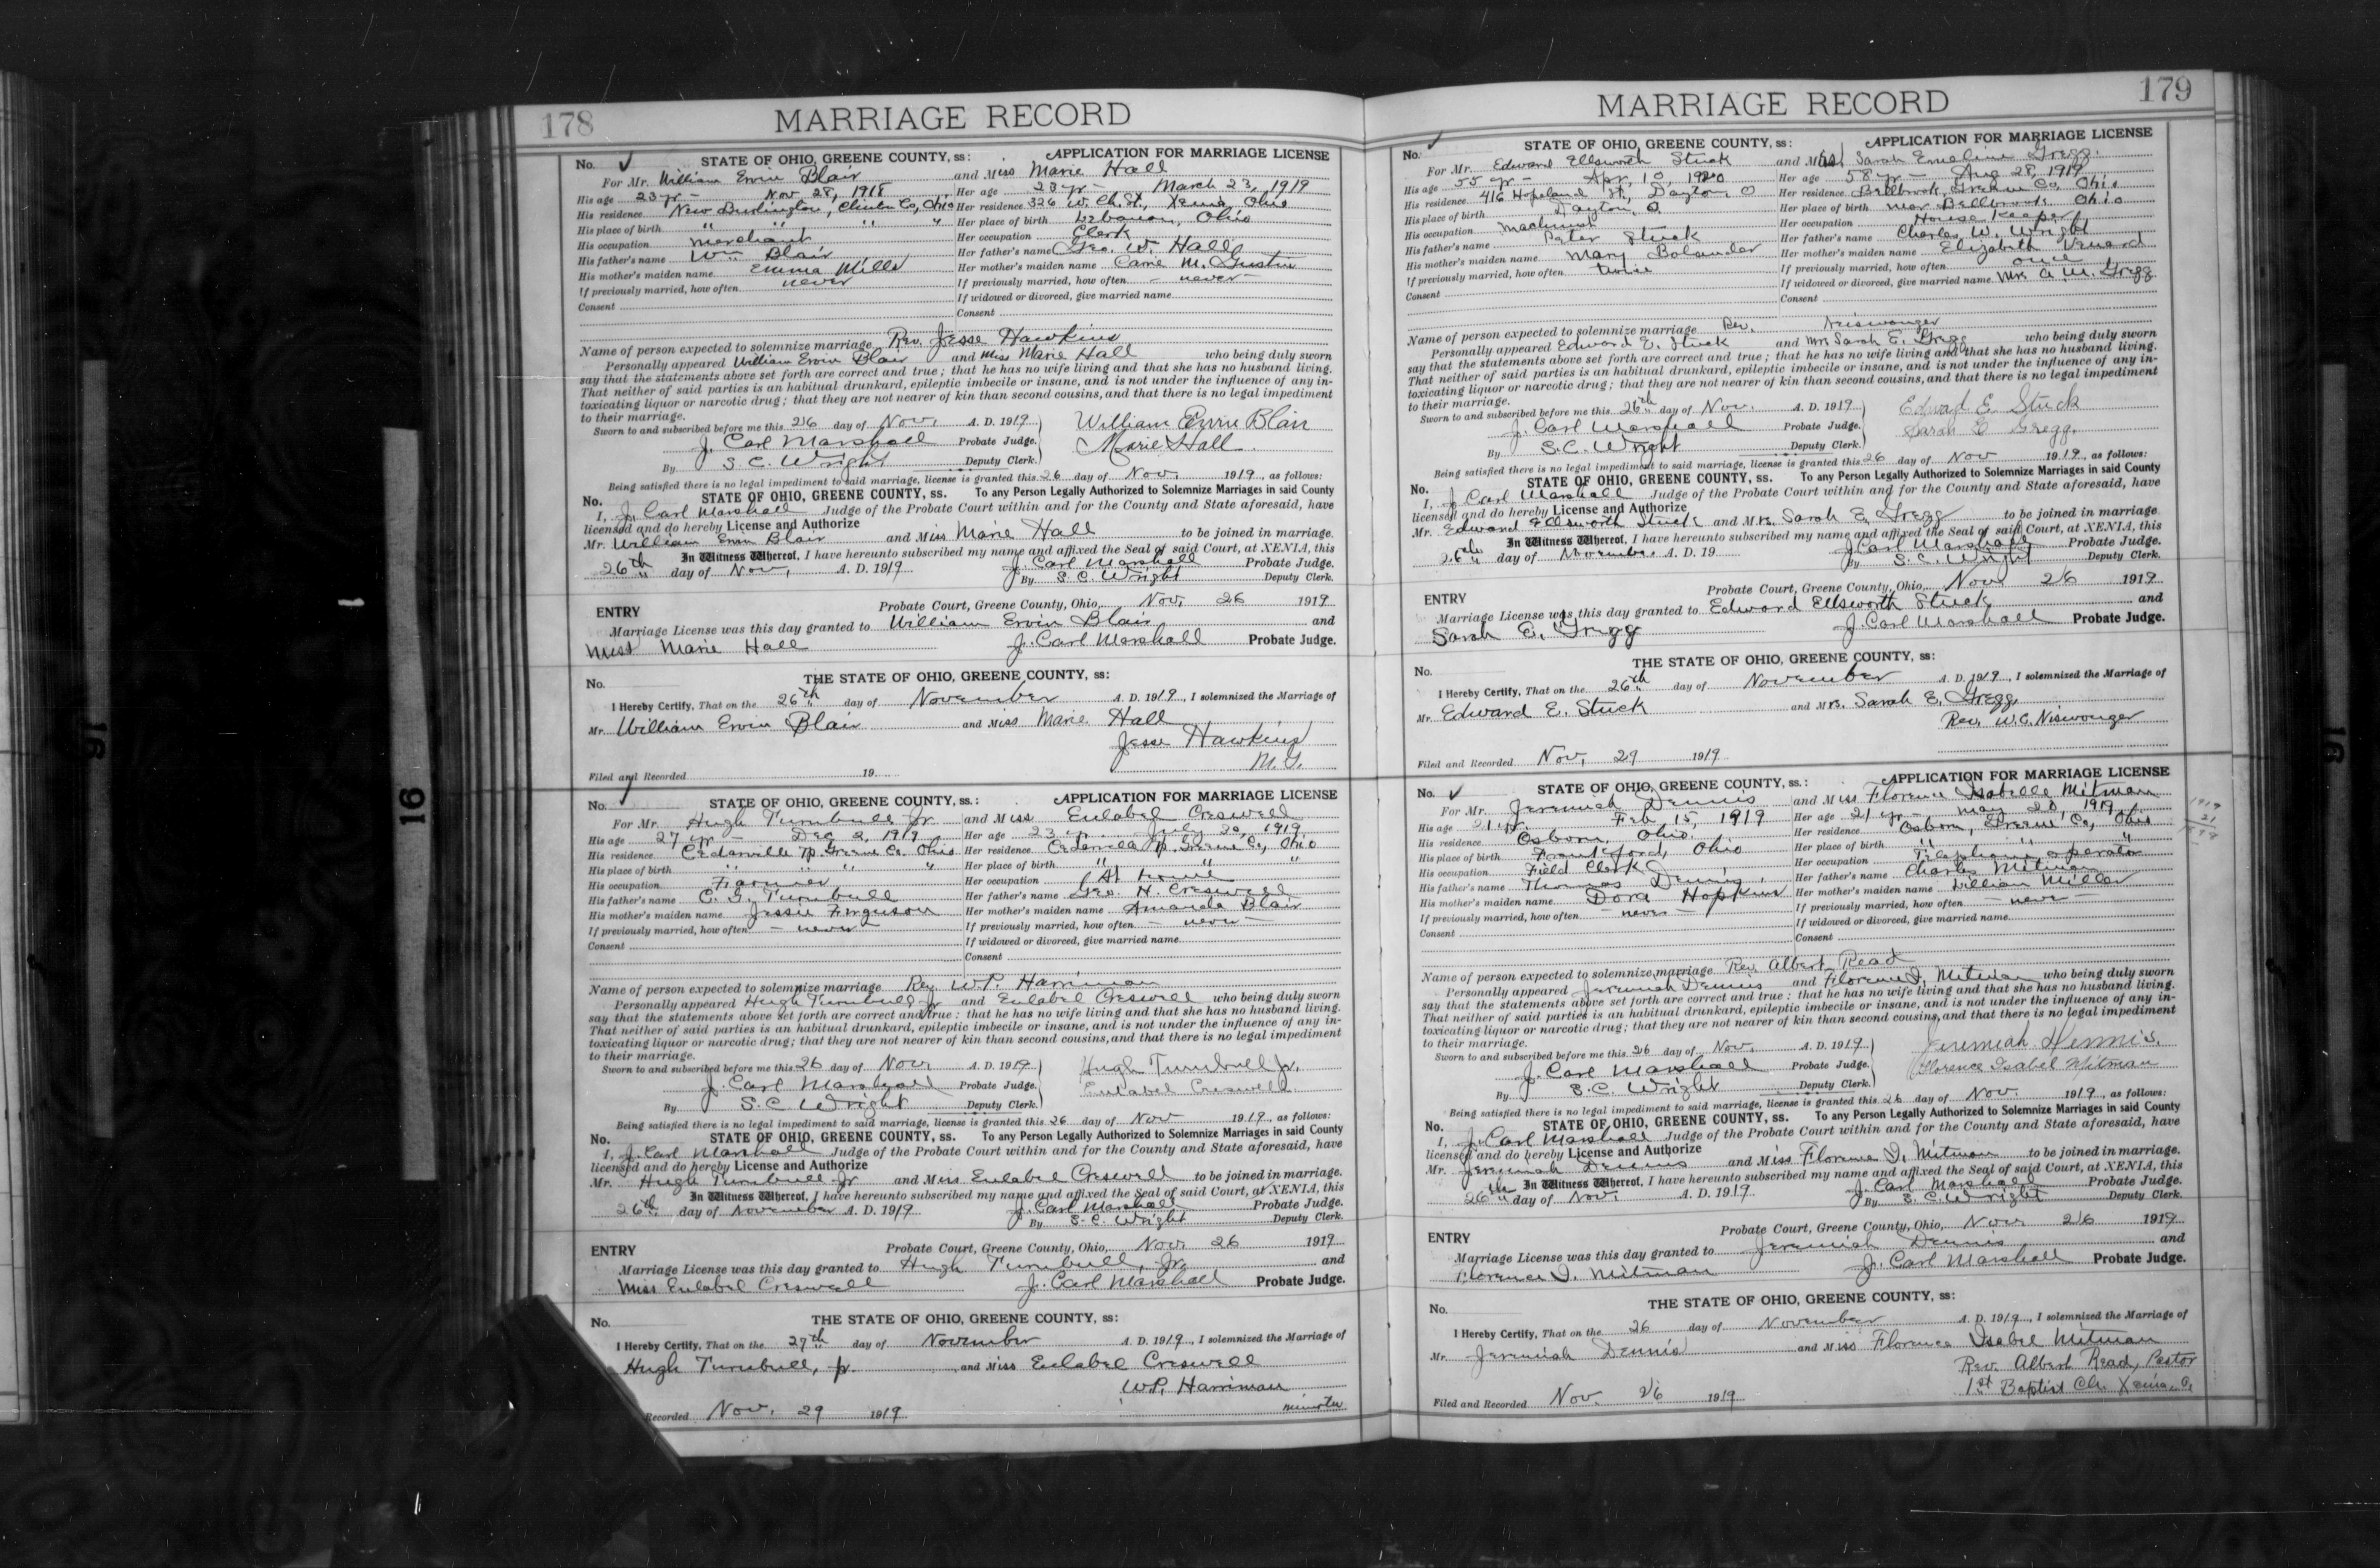 178
MARRIAGE RECORD
No. STATE OF OHIO, GREENE COUNTY, ss: APPLICATION FOR MARRIAGE LICENSE
For Mr. William Ervin Blair and Miss Marie Hall
His age 23 yr - Nov 28, 1918 Her age 23 yr - March 23, 1919
His residence New Burlington, Clinton Co, Ohio Her residence 326 W. Ch. St., Xenia, Ohio
His place of birth " " " " Her place of birth Lebanon, Ohio
His occupation Merchant Her occupation Clerk
His father's name Wm Blair Her father's name Geo. W. Hall
His mother's maiden name Emma Mills Her mother's maiden name Carrie M. Gustin
If previously married, how often never If previously married, how often - never -
Consent If widowed or divorced, give married name
Consent
Name of person expected to solemnize marriage Rev. Jesse Hawkins
Personally appeared William Ervin Blair and Miss Marie Hall who being duly sworn
say that the statements above set forth are correct and true; that he has no wife living and that she has no husband living.
That neither of said parties is an habitual drunkard, epileptic imbecile or insane, and is not under the influence of any in-
toxicating liquor or narcotic drug; that they are not nearer of kin than second cousins, and that there is no legal impediment
to their marriage.
Sworn to and subscribed before me this 26 day of Nov. A. D. 1919 William Ervin Blair
J. Carl Marshall Probate Judge. Marie Hall
By S. C. Wright Deputy Clerk.
Being satisfied there is no legal impediment to said marriage, license is granted this 26 day of Nov. 1919, as follows:
No. STATE OF OHIO, GREENE COUNTY, ss. To any Person Legally Authorized to Solemnize Marriages in said County
I, J. Carl Marshall Judge of the Probate Court within and for the County and State aforesaid, have
licensed and do hereby License and Authorize
Mr. William Ervin Blair and Miss Marie Hall to be joined in marriage.
In Witness Whereof, I have hereunto subscribed my name and affixed the Seal of said Court, at XENIA, this
26th day of Nov. A. D. 1919 J. Carl Marshall Probate Judge.
By S. C. Wright Deputy Clerk.
ENTRY Probate Court, Greene County, Ohio, Nov. 26 1919
Marriage License was this day granted to William Ervin Blair and
Miss Marie Hall J. Carl Marshall Probate Judge.
No. THE STATE OF OHIO, GREENE COUNTY, ss:
I Hereby Certify, That on the 26th day of November A. D. 1919, I solemnized the Marriage of
Mr William Ervin Blair and Miss Marie Hall
Jesse Hawkins
M.G.
Filed and Recorded 19
No. STATE OF OHIO, GREENE COUNTY, ss.: APPLICATION FOR MARRIAGE LICENSE
For Mr. Hugh Turnbull Jr and Miss Eulabel Creswell
His age 27 yr - Dec 2, 1919 Her age 23 yr July 20, 1919
His residence Cedarville Tp. Greene Co. Ohio Her residence Cedarville Tp. Greene Co, Ohio
His place of birth " " " " Her place of birth " " "
His occupation Farmer Her occupation At home
His father's name C. G. Turnbull Her father's name Geo. H. Creswell
His mother's maiden name Jessie Ferguson Her mother's maiden name Amanda Blair
If previously married, how often - never - If previously married, how often - never -
Consent If widowed or divorced, give married name
Consent
Name of person expected to solemnize marriage Rev. W.P. Harriman
Personally appeared Hugh Turnbull Jr and Eulabel Creswell who being duly sworn
say that the statements above set forth are correct and true: that he has no wife living and that she has no husband living.
That neither of said parties is an habitual drunkard, epileptic imbecile or insane, and is not under the influence of any in-
toxicating liquor or narcotic drug; that they are not nearer of kin than second cousins, and that there is no legal impediment
to their marriage.
Sworn to and subscribed before me this 26 day of Nov. A. D. 1919 Hugh Turnbull Jr.
J. Carl Marshall Probate Judge. Eulabel Creswell
By S. C. Wright Deputy Clerk.
Being satisfied there is no legal impediment to said marriage, license is granted this 26 day of Nov 1919, as follows:
No. STATE OF OHIO, GREENE COUNTY, ss. To any Person Legally Authorized to Solemnize Marriages in said County
I, J. Carl Marshall Judge of the Probate Court within and for the County and State aforesaid, have
licensed and do hereby License and Authorize
Mr. Hugh Turnbull Jr and Miss Eulabel Creswell to be joined in marriage.
In Witness Whereof, I have hereunto subscribed my name and affixed the Seal of said Court, at XENIA, this
26th day of November A. D. 1919 J. Carl Marshall Probate Judge.
By S. C. Wright Deputy Clerk.
ENTRY Probate Court, Greene County, Ohio, Nov. 26 1919
Marriage License was this day granted to Hugh Turnbull, Jr. and
Miss Eulabel Creswell J. Carl Marshall Probate Judge.
No. THE STATE OF OHIO, GREENE COUNTY, ss:
I Hereby Certify, That on the 27th day of November A. D. 1919, I solemnized the Marriage of
Hugh Turnbull, Jr. and Miss Eulabel Creswell
W.P. Harriman
minister
Recorded Nov. 29 1919
179
MARRIAGE RECORD
No. STATE OF OHIO, GREENE COUNTY, ss: APPLICATION FOR MARRIAGE LICENSE
For Mr. Edward Ellsworth Stuck and Mrs. Sarah Emeline Gregg.
His age 55 yr - Apr, 10, 1920 Her age 58 yr - Aug 28, 1919
His residence 416 Hopeland St, Dayton, O Her residence Bellbrook, Greene Co, Ohio
His place of birth Dayton, O. Her place of birth near Bellbrook Ohio
His occupation Machinist Her occupation House Keeper
His father's name Peter Stuck Her father's name Charles W. Wright
His mother's maiden name Mary Bolander Her mother's maiden name Elizabeth Venard
If previously married, how often twice If previously married, how often once
Consent If widowed or divorced, give married name Mrs. A. M. Gregg
Consent
Name of person expected to solemnize marriage Rev. Neiswonger
Personally appeared Edward E. Stuck and Mrs Sarah E. Gregg who being duly sworn
say that the statements above set forth are correct and true; that he has no wife living and that she has no husband living.
That neither of said parties is an habitual drunkard, epileptic imbecile or insane, and is not under the influence of any in-
toxicating liquor or narcotic drug; that they are not nearer of kin than second cousins, and that there is no legal impediment
to their marriage.
Sworn to and subscribed before me this 26th day of Nov. A. D. 1919 Edward E. Stuck
J. Carl Marshall Probate Judge. Sarah E Gregg.
By S.C. Wright Deputy Clerk.
Being satisfied there is no legal impediment to said marriage, license is granted this 26 day of Nov 1919, as follows:
No. STATE OF OHIO, GREENE COUNTY, ss. To any Person Legally Authorized to Solemnize Marriages in said County
I, J. Carl Marshall Judge of the Probate Court within and for the County and State aforesaid, have
licensed and do hereby License and Authorize
Mr. Edward Ellsworth Stuck and Mrs. Sarah E. Gregg to be joined in marriage.
In Witness Whereof, I have hereunto subscribed my name and affixed the Seal of said Court, at XENIA, this
26th day of November A. D. 19 J. Carl Marshall Probate Judge.
By S. C. Wright Deputy Clerk.
ENTRY Probate Court, Greene County, Ohio, Nov 26 1919
Marriage License was this day granted to Edward Ellsworth Stuck and
Sarah E. Gregg J. Carl Marshall Probate Judge.
No. THE STATE OF OHIO, GREENE COUNTY, ss:
I Hereby Certify, That on the 26th day of November A. D. 1919, I solemnized the Marriage of
Mr. Edward E. Stuck and Mrs. Sarah E. Gregg,
Rev. W.C. Niswonger
Filed and Recorded Nov, 29 1919
No. STATE OF OHIO, GREENE COUNTY, ss.: APPLICATION FOR MARRIAGE LICENSE
For Mr. Jeremiah Dennis and Miss Florence Isabelle Mitman
His age 21 yr. Feb, 15, 1919 Her age 21 yr - May 20, 1919
His residence Osborn, Ohio. Her residence Osborn, Greene Co, Ohio
His place of birth Frankford, Ohio Her place of birth " " "
His occupation Field Clerk Her occupation Telephone operator
His father's name Thomas Dennis, Her father's name Charles Mitman
His mother's maiden name Dora Hopkins Her mother's maiden name Lillian Miller
If previously married, how often - never - If previously married, how often - never -
Consent If widowed or divorced, give married name
Consent
1919
21
1898
Name of person expected to solemnize marriage Rev. Albert Read
Personally appeared Jeremiah Dennis and Florence I. Mitman who being duly sworn
say that the statements above set forth are correct and true: that he has no wife living and that she has no husband living.
That neither of said parties is an habitual drunkard, epileptic imbecile or insane, and is not under the influence of any in-
toxicating liquor or narcotic drug; that they are not nearer of kin than second cousins, and that there is no legal impediment
to their marriage.
Sworn to and subscribed before me this 26 day of Nov. A. D. 1919 Jeremiah Dennis.
J. Carl Marshall Probate Judge. Florence Isabel Mitman
By S. C. Wright Deputy Clerk.
Being satisfied there is no legal impediment to said marriage, license is granted this 26 day of Nov. 1919, as follows:
No. STATE OF OHIO, GREENE COUNTY, ss. To any Person Legally Authorized to Solemnize Marriages in said County
I, J. Carl Marshall Judge of the Probate Court within and for the County and State aforesaid, have
licensed and do hereby License and Authorize
Mr. Jeremiah Dennis and Miss Florence I. Mitman to be joined in marriage.
In Witness Whereof, I have hereunto subscribed my name and affixed the Seal of said Court, at XENIA, this
26th day of Nov. A. D. 1919 J. Carl Marshall Probate Judge.
By S. C. Wright Deputy Clerk.
ENTRY Probate Court, Greene County, Ohio, Nov 26 1919
Marriage License was this day granted to Jeremiah Dennis and
Florence I. Mitman J. Carl Marshall Probate Judge.
No. THE STATE OF OHIO, GREENE COUNTY, ss:
I Hereby Certify, That on the 26 day of November A. D. 1919, I solemnized the Marriage of
Mr. Jeremiah Dennis and Miss Florence Isabel Mitman
Rev. Albert Read, Pastor
1st Baptist Ch. Xenia, O.
Filed and Recorded Nov. 26 1919
16
16
16